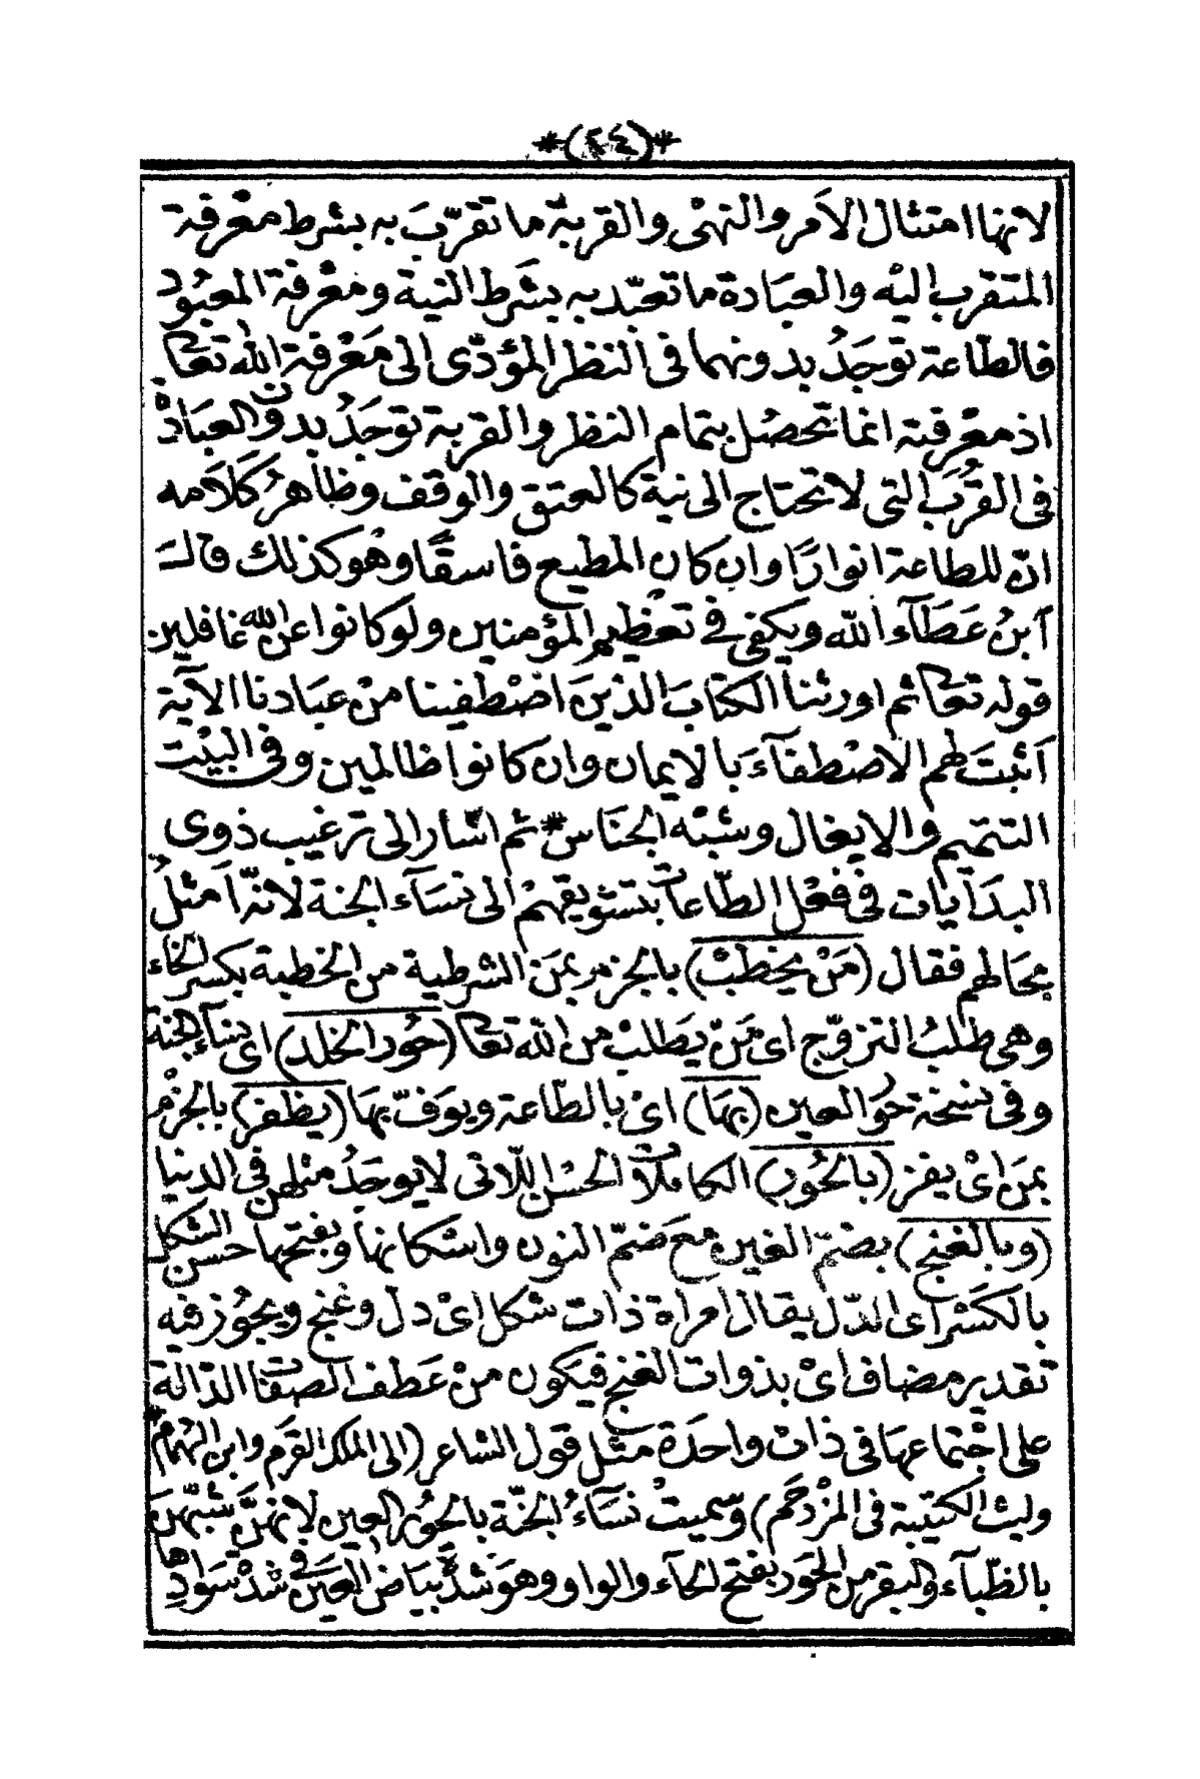 *(٢٤)*
لانها امتثال الاَمر والنهْى والقربةُ ما تقرّبَ به بشرط معْرفة
المتقرب اليْه والعبَادة ما تعبّد به بشَرط النية ومعْرفة المعبُود
فالطّاعة توجَدُ بدونهما فى النظر المؤدّى الى مَعْرفة الله تعالى
اذ معْرفته انما تحصُل بتمام النظر والقربة توجَدُ بدون العبَادة
فى القُرَب التى لا تحتاج الى نية كالعتق والوقف وظاهرُ كَلَامه
انّ للطاعة انوارًا وان كان المطيع فاسقًا وهُو كذلك قالَ
ابنُ عَطَآء الله ويكفى فى تعْظيم المؤمنين ولو كانوا عن الله غافلين
قوله تعالى ثم اورثنا الكتابَ الذينَ اصْطفينا منْ عبَادنا الآية
اَثبتَ لهم الاصْطفَآءَ بالايمان وان كانوا ظالمين وفى البيْت
التتميم والايغال وشبْه الجنَاس * ثم اشار الى ترغيب ذوى
البدَايات فى فعْل الطّاعات بتشويقهمْ الى نسَآء الجنة لانّه اَمثلُ
بحَالهم فقال (مَنْ يخطبْ) بالجزم بمَن الشرطية من الخطبة بكسر الخاء
وهى طلبُ التزوّج اى مَنْ يَطلبْ من الله تعالى (حُور الخلد) اى نسآء الجنة
وفى نسْخة حور العين (بهَا) اىْ بالطّاعة ويوَفّ بهَا (يظفر) بالجزْم
بمَن اىْ يفز (بالحُور) الكاملات الحسْن اللّاتى لا يوجَدُ مثلهن فى الدنيا
(وبالغنج) بضمّ الغين معَ ضمّ النون واسْكانها وبفتحها حسن الشكل
بالكَسْر اى الدّل يقال امراة ذات شكل اىْ دل وغنج ويجُوز فيه
تقدير مضاف اىْ بذوات الغنج فيكون منْ عَطف الصفات الدّالة
على اجْتماعهَا فى ذات واحدَة مثل قول الشاعر (الى الملك القَرم وابن الهُمام *
وليث الكتيبة فى المزْدحَم) وسّميتْ نسَآءُ الجنّة بالحُور العين لانهنَّ شبّهنَ
بالظّبآء والبقر من الحَوَر بفتح الحآء والواو وهوَ شدّة بيَاض العيَن فى شدّة سَوَادِها